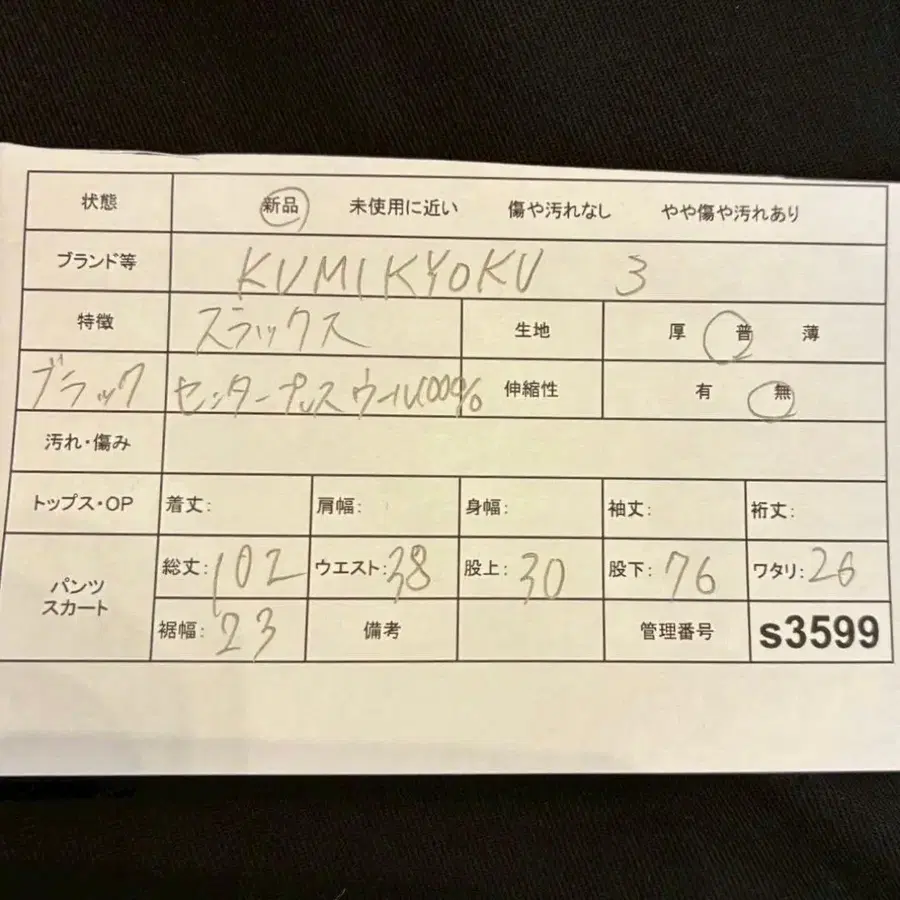 状態 新品 未使用に近い 傷や汚れなし やや傷や汚れあり
ブランド等 KUMIKYOKU 3
特徴 スラックス 生地 厚 普 薄
ブラック センタープレス ウール100% 伸縮性 有 無
汚れ・傷み
トップス・OP 着丈: 肩幅: 身幅: 袖丈: 裄丈:
パンツ
スカート
総丈:102 ウエスト:38 股上:30 股下:76 ワタリ:26
裾幅:23 備考 管理番号 s3599